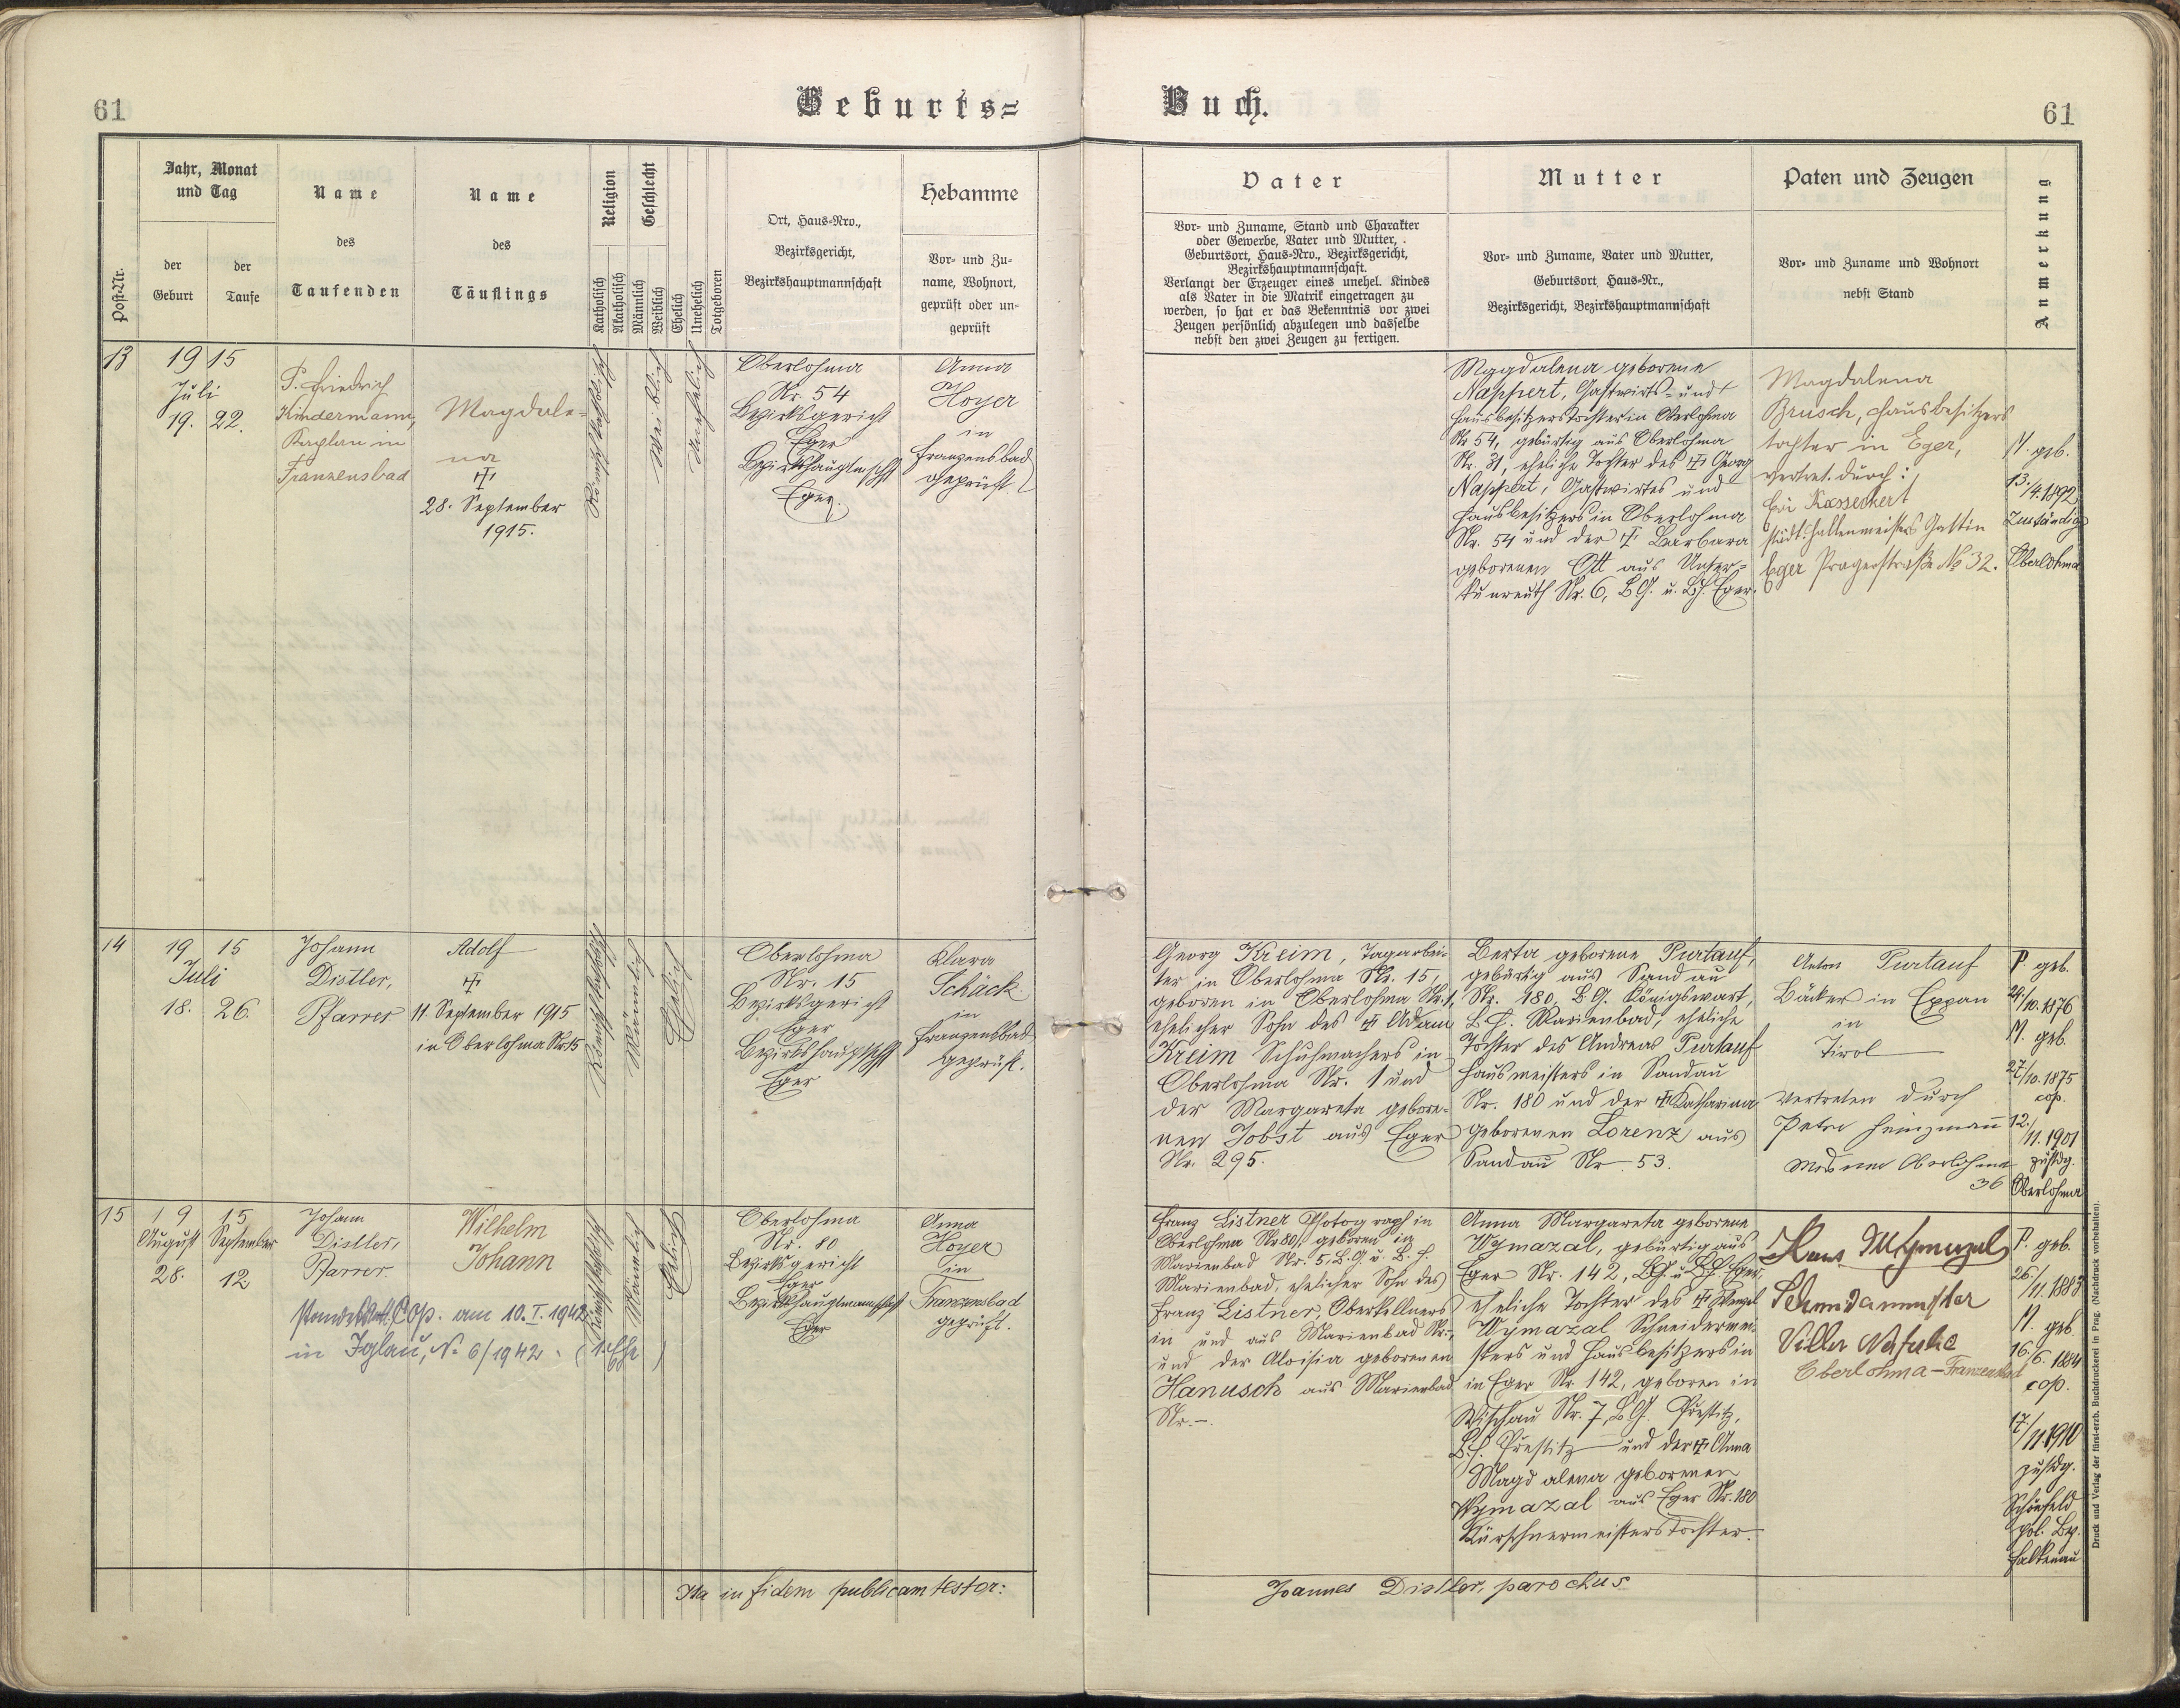 61
Geburts=
Buch.
61
Post-Nr.
Jahr, Monat
und Tag
der
Geburt
der
Taufe
Name
des
Taufenden
Name
des
Täuflings
Religion
Katholisch
Akatholisch
Geschlecht
Männlich
Weiblich
Ehelich
Unehelich
Totgeboren
Ort, Haus-Nro.,
Bezirksgericht,
Bezirkshauptmannschaft
Hebamme
Vor- und Zu-
name, Wohnort,
geprüft oder un-
geprüft
Vater
Vor- und Zuname, Stand und Charakter
oder Gewerbe, Vater und Mutter,
Geburtsort, Haus-Nro., Bezirksgericht,
Bezirkshauptmannschaft.
Verlangt der Erzeuger eines unehel. Kindes
als Vater in die Matrik eingetragen zu
werden, so hat er das Bekenntnis vor zwei
Zeugen persönlich abzulegen und dasselbe
nebst den zwei Zeugen zu fertigen.
Mutter
Vor- und Zuname, Vater und Mutter,
Geburtsort, Haus-Nr.,
Bezirksgericht, Bezirkshauptmannschaft
Paten und Zeugen
Vor- und Zuname und Wohnort
nebst Stand
Anmerkung
13
1915
Juli
19. 22.
P. Friedrich
Kindermann,
Kaplan in
Franzensbad
Magdale-
na
28. September
1915.
Römisch katholisch
Weiblich
Unehelich
Oberlohma
Nr. 54
Bezirksgericht
Eger
Bezirkshauptmschft
Eger.
Anna
Hoyer
in
Franzensbad
geprüft
Magdalena geborene
Nappert, Gastwirts- und
Hausbesitzerstochter in Oberlohma
Nr 54, gebürtig aus Oberlohma
Nr. 31, eheliche Tochter des Georg
Nappert, Gastwirtes und
Hausbesitzers in Oberlohma
Nr. 54 und der Barbara
geborenen Ott aus Unter-
kunreuth Nr. 6, BG. u. BH. Eger.
Magdalena
Brusch, Hausbesitzers
tochter in Eger,
vertret. durch:
städt. Hallenmeisters Gattin
Eger Pragerstraße No 32.
M. geb.
13./4. 1892
Zuständig
Oberlohma
14
1915
Juli
18. 26.
Johann
Distler,
Pfarrer
Adolf
11. September 1915
in Oberlohma Nr. 15
Römisch katholisch
Männlich
Ehelich
Oberlohma
Nr. 15
Bezirksgericht
Eger
Bezirkshauptschft
Eger
Klara
Schäck
in
Franzensbad
geprüft.
Georg Kreim, Tagarbei-
ter in Oberlohma Nr. 15,
geboren in Oberlohma Nr. 1,
ehelicher Sohn des Adam
Kreim Schuhmachers in
Oberlohma Nr. 1 und
der Margareta gebore-
nen Jobst aus Eger
Nr. 295.
Berta geborene Purtauf,
gebürtig aus Sandau
Nr. 180, B.G. Königswart,
B.H. Marienbad, eheliche
Tochter des Andreas Purtauf
Hausmeisters in Sandau
Nr. 180 und der Katharina
geborenen Lorenz aus
Sandau Nr. 53.
Anton Purtauf
Bäcker in Eppan
in
Tirol
vertreten durch
Peter Heinzmann
Oberlohma
36
P. geb.
29./10. 1876
M. geb.
27./10. 1875
cop.
12./11. 1901
zustdg.
Oberlohma
15
1915
August September
28. 12
Johann
Distler,
Pfarrer
Wilhelm
Johann
standesamtl. Cop. am 10. I. 1942
in Iglau, No 6/1942. (1. Ehe)
Römisch katholisch
Männlich
Ehelich
Oberlohma
Nr. 80
Bezirksgericht
Eger
Bezirkshauptmannschaft
Eger
Anna
Hoyer
in
Franzensbad
geprüft.
Franz Listner Photograph in
Oberlohma Nr 80, geboren in
Marienbad Nr. 5, B.G. u. B.H.
Marienbad, ehelicher Sohn des
Franz Listner, Oberkellners
in und aus Marienbad Nr. -,
und der Aloisia geborenen
Hanusch aus Marienbad
Nr. -.
Anna Margareta geborene
Wymazal, gebürtig aus
Eger Nr. 142, BG. u. BH. Eger,
eheliche Tochter des Wenzel
Wymazal Schneidermei-
sters und Hausbesitzers in
in Eger Nr. 142, geboren in
Wischau Nr. 7, BG. Prestitz,
B.H. Prestitz und der Anna
Magdalena geborenen
Wymazal aus Eger Nr. 180
Kürschnermeisterstochter.
Hans Wymazal
Schneidermeister
Oberlohma - Franzensbad
P. geb.
26./11. 1883
M. geb.
16./6. 1884
cop.
17./11 1910
zustdg.
Schönfeld
pol. Bez.
Falkenau
Ita in fidem publicam testor:
Joannes Distler, parochus
Druck und Verlag der fürst-erzb. Buchdruckerei in Prag. (Nachdruck vorbehalten).